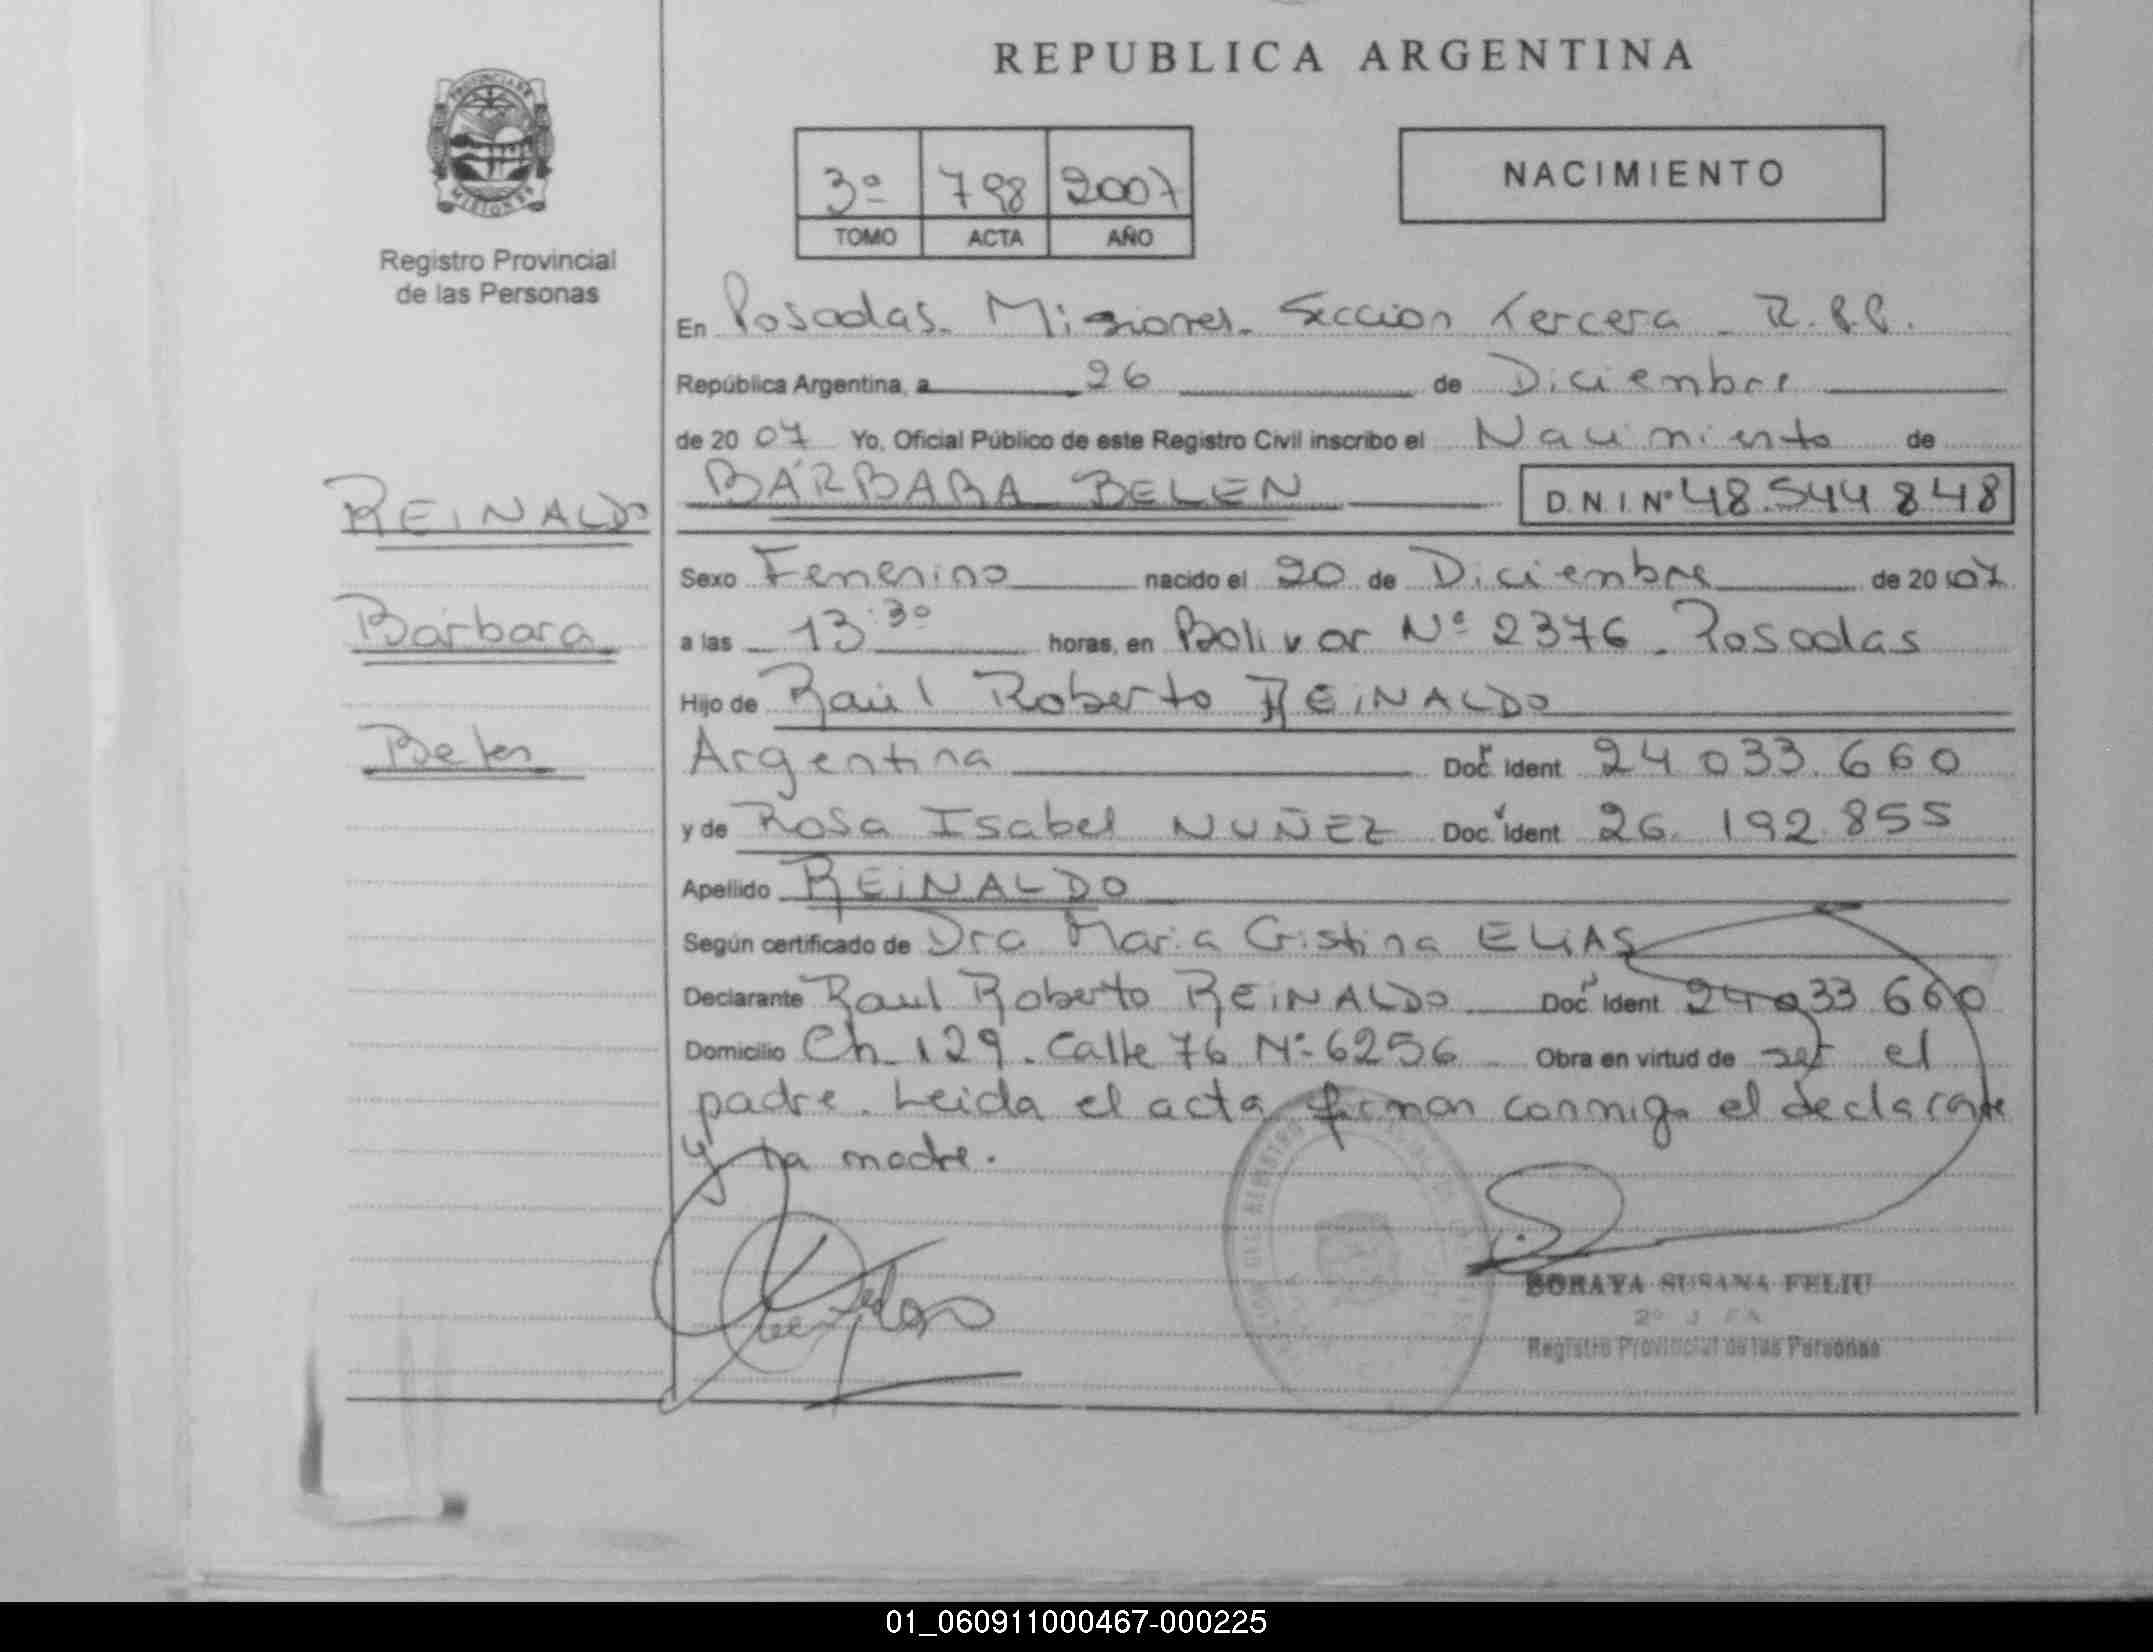 REPUBLICA ARGENTINA
PROVINCIA DE
MISIONES
Registro Provincial
de las Personas
3º 798 2007
TOMO ACTA AÑO
NACIMIENTO
En Posadas. Misiones. Seccion Tercera - R.P.P.
República Argentina, a 26 de Diciembre
de 20 07 Yo, Oficial Público de este Registro Civil inscribo el Nacimiento de
BÁRBARA BELEN D.N.I. Nº 48.544 848
REINALDO
Bárbara
Belen
Sexo Femenino nacido el 20 de Diciembre de 20 07
a las 13 30 horas, en Bolivar Nº 2376. Posadas
Hijo de Raúl Roberto REINALDO
Argentina Doc. Ident 24 033.660
y de Rosa Isabel NUÑEZ Doc. Ident 26. 192.855
Apellido REINALDO
Según certificado de Dra Maria Cristina ELIAS
Declarante Raul Roberto REINALDO Doc Ident 24 033 660
Domicilio Ch. 129. Calle 76 Nº 6256 Obra en virtud de ser el
padre. Leida el acta firman conmigo el declarante
y la madre.
SORAYA SUSANA FELIU
Registro Provincial de las Personas
01_060911000467-000225